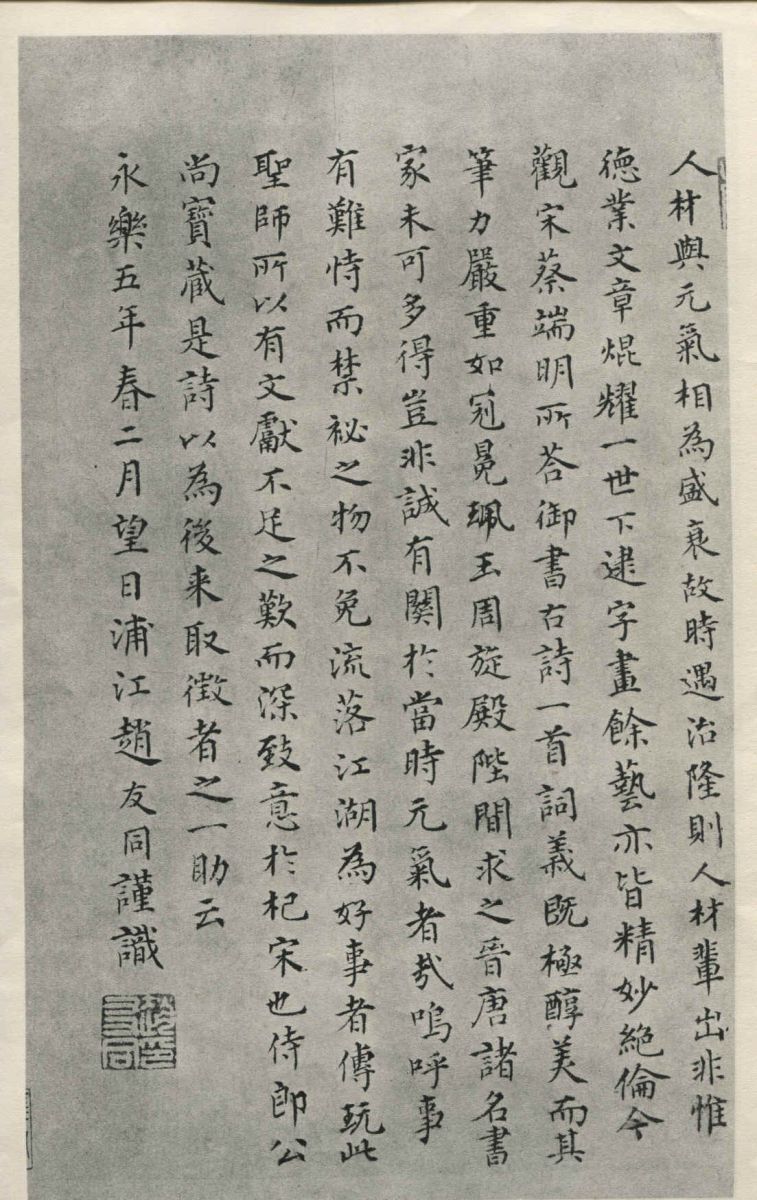 人材與元氣相為盛衰故時遇治隆則人材輩出非惟
德業文章焜耀一世下逮字畫餘藝亦皆精妙絕倫今
觀宋蔡端明所荅御書古詩一首詞義既極醇美而其
筆力嚴重如冠冕珮玉周旋殿陛間求之晉唐諸名書
家未可多得豈非誠有關於當時元氣者哉嗚呼事
有難恃而禁祕之物不免流落江湖為好事者傳玩此
聖師所以有文獻不足之歎而深致意於杞宋也侍郎公
尚寶藏是詩以為後来取徵者之一助云
永樂五年春二月望日浦江趙友同謹識